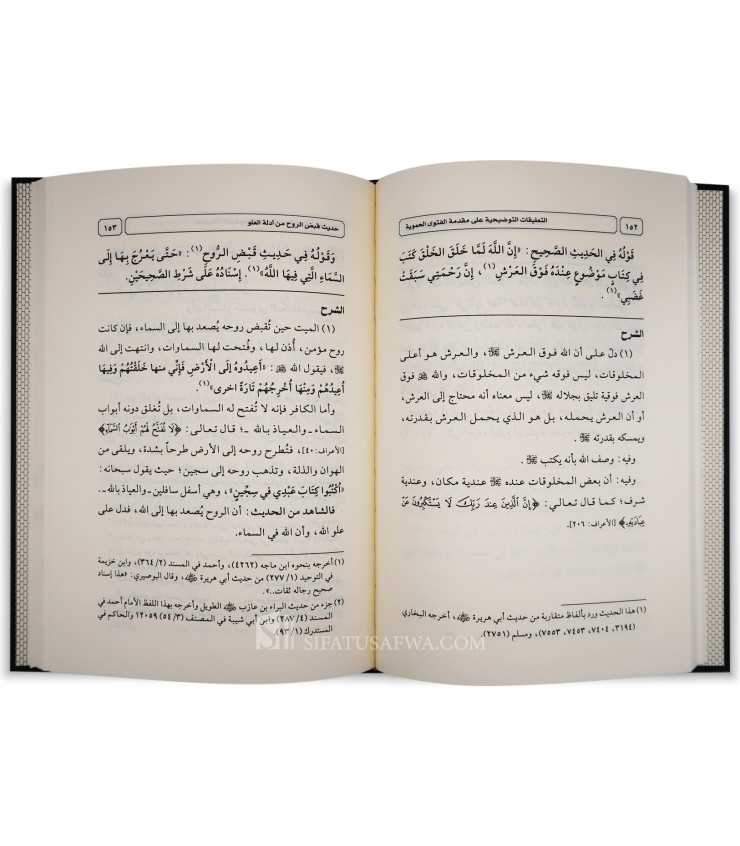 ١٥٢
التعليقات التوضيحية على مقدمة الفتوى الحموية
قَوْلُهُ فِي الحَدِيثِ الصَّحِيحِ: «إِنَّ اللَّهَ لَمَّا خَلَقَ الخَلْقَ كَتَبَ
فِي كِتَابٍ مَوْضُوعٍ عِنْدَهُ فَوْقَ العَرْشِ(١)، إِنَّ رَحْمَتِي سَبَقَتْ
غَضَبِي»(١).
الشرح
(١) دلّ على أن الله فوق العرش ﷻ، والعرش هو أعلى
المخلوقات، ليس فوقه شيء من المخلوقات، والله ﷻ فوق
العرش فوقية تليق بجلاله ﷻ، ليس معناه أنه محتاج إلى العرش،
أو أن العرش يحمله، بل هو الذي يحمل العرش بقدرته،
ويمسكه بقدرته ﷻ.
وفيه: وصف الله بأنه يكتب ﷻ.
وفيه: أن بعض المخلوقات عنده ﷻ عندية مكان، وعندية
شرف؛ كما قال تعالى: ﴿إِنَّ الَّذِينَ عِندَ رَبِّكَ لَا يَسْتَكْبِرُونَ عَنْ
عِبَادَتِهِ﴾ [الأعراف: ٢٠٦].
(١) هذا الحديث ورد بألفاظ متقاربة من حديث أبي هريرة ﵁، أخرجه البخاري
(٣١٩٤، ٧٤٠٤، ٧٤٥٣، ٧٥٥٣)، ومسلم (٢٧٥١)
حديث قبض الروح من أدلة العلو
١٥٣
وَقَوْلُهُ فِي حَدِيثِ قَبْضِ الرُّوحِ(١): «حَتَّى يَعْرُجَ بِهَا إِلَى
السَّمَاءِ الَّتِي فِيهَا اللَّهُ»(١). إِسْنَادُهُ عَلَى شَرْطِ الصَّحِيحَيْنِ.
الشرح
(١) الميت حين تُقبض روحه يُصعد بها إلى السماء، فإن كانت
روح مؤمن، أُذن لها، وفُتحت لها السماوات، وانتهت إلى الله
ﷻ، فيقول الله ﷻ: «أَعِيدُوهُ إِلَى الْأَرْضِ فَإِنِّي مِنها خَلَقْتُهُمْ وَفِيهَا
أُعِيدُهُمْ وَمِنْهَا أُخْرِجُهُمْ تَارَةً اخرى»(٢).
وأما الكافر فإنه لا تُفتح له السماوات، بل تُغلق دونه أبواب
السماء ـ والعياذ بالله ـ؛ قال تعالى: ﴿لَا تُفَتَّحُ لَهُمْ أَبْوَابُ السَّمَاءِ﴾
[الأعراف: ٤٠]، فتُطرح روحه إلى الأرض طرحاً بشدة، ويلقى من
الهوان والذلة، وتذهب روحه إلى سجين؛ حيث يقول سبحانه:
«اكْتُبُوا كِتَابَ عَبْدِي فِي سِجِّينٍ»، وهي أسفل سافلين ـ والعياذ بالله ـ.
فالشاهد من الحديث: أن الروح يُصعد بها إلى الله، فدل على
علو الله، وأن الله في السماء.
(١) أخرجه بنحوه ابن ماجه (٤٢٦٢)، وأحمد في المسند (٣٦٤/٢)، وابن خزيمة
في التوحيد (٢٧٧/١) من حديث أبي هريرة ﵁، وقال البوصيري: «هذا إسناد
صحيح رجاله ثقات..».
(٢) جزء من حديث البراء بن عازب ﵁ الطويل وأخرجه بهذا اللفظ الإمام أحمد في
المسند (٢٨٧/٤) وابن أبي شيبة في المصنف (٥٤/٣) ١٢٠٥٩ والحاكم في
المستدرك (٩٣/١)
SIFATUSAFWA.COM